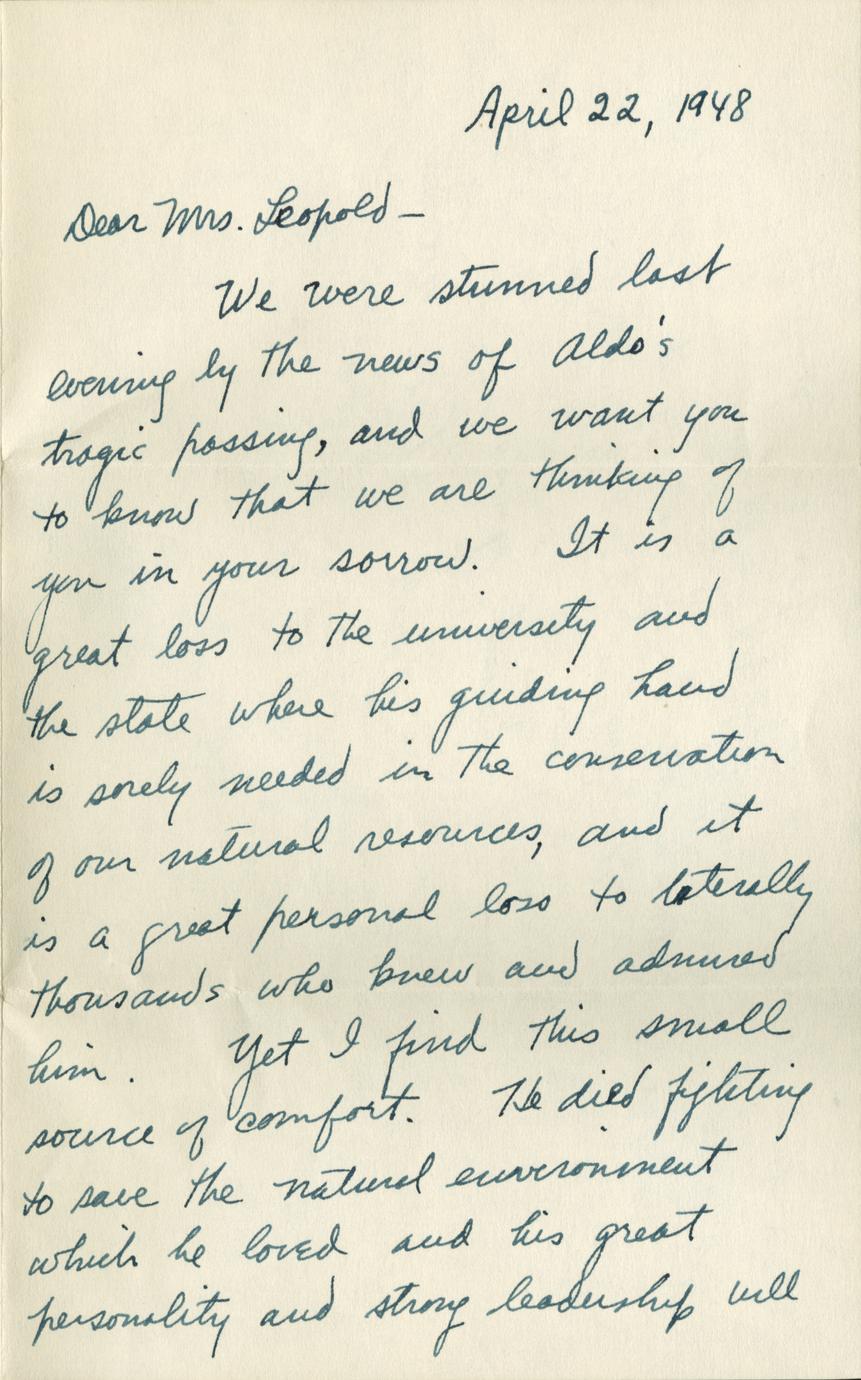 April 22, 1948
Dear Mrs. Leopold –
We were stunned last
evening by the news of Aldo's
tragic passing, and we want you
to know that we are thinking of
you in your sorrow. It is a
great loss to the university and
the state where his guiding hand
is sorely needed in the conservation
of our natural resources, and it
is a great personal loss to literally
thousands who knew and admired
him. Yet I find this small
source of comfort. He died fighting
to save the natural environment
which he loved and his great
personality and strong leadership will